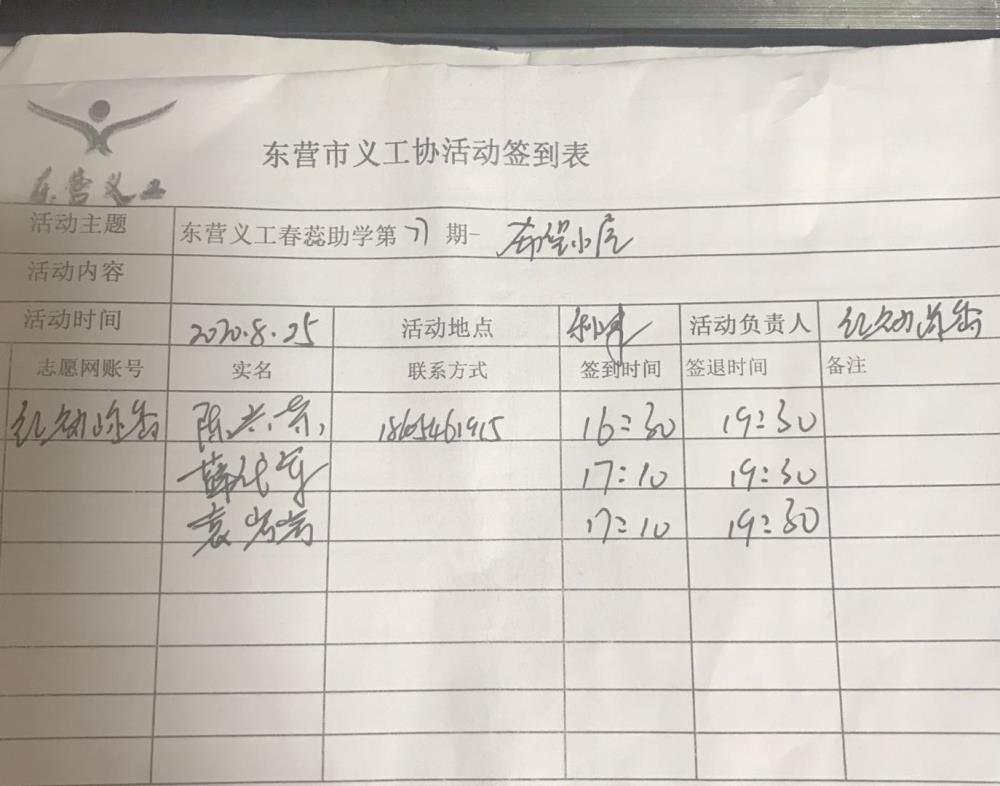 东营义工
东营市义工协活动签到表
活动主题 东营义工春蕊助学第 71 期- 希望小屋
活动内容
活动时间 2020.8.25 活动地点 利津 活动负责人
志愿网账号 实名 联系方式 签到时间 签退时间 备注
陈 16:30 19:30
薛 17:10 19:30
袁岩岩 17:10 19:30